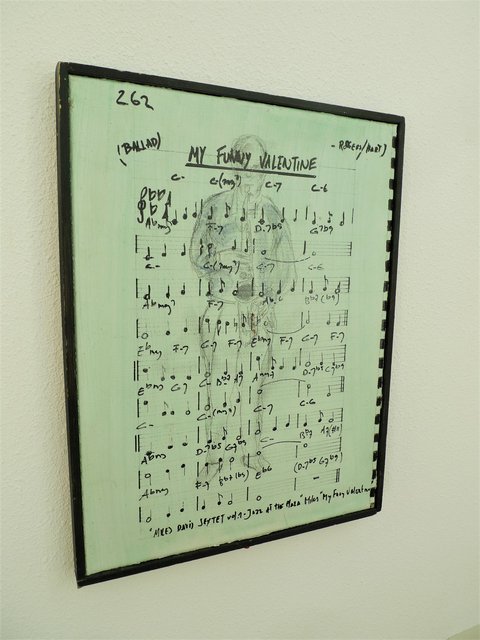 262
(BALLAD)
MY FUNNY VALENTINE
- RODGERS/HART)
C- C-(maj7) C-7 C-6
Abmaj7 F-7 D-7b5 G7b9
C- C-(maj7) C-7 C-6
Abmaj7 F-7 Bb7(b9)
Ebmaj F-7 G-7 F-7 Ebmaj F-7 G-7 F-7
Ebmaj G7 C- Bb7 A7 Abmaj7 D-7b5 G7b9
C- C-(maj7) C-7 C-6
Abmaj D-7b5 G7b9 C- Bb7
Abmaj F-7 Bb7(b9) Eb6 (D-7b5 G7b9)
"MILES DAVIS SEXTET vol.1 - JAZZ AT the PLAZA" Miles "My Funny Valentine"